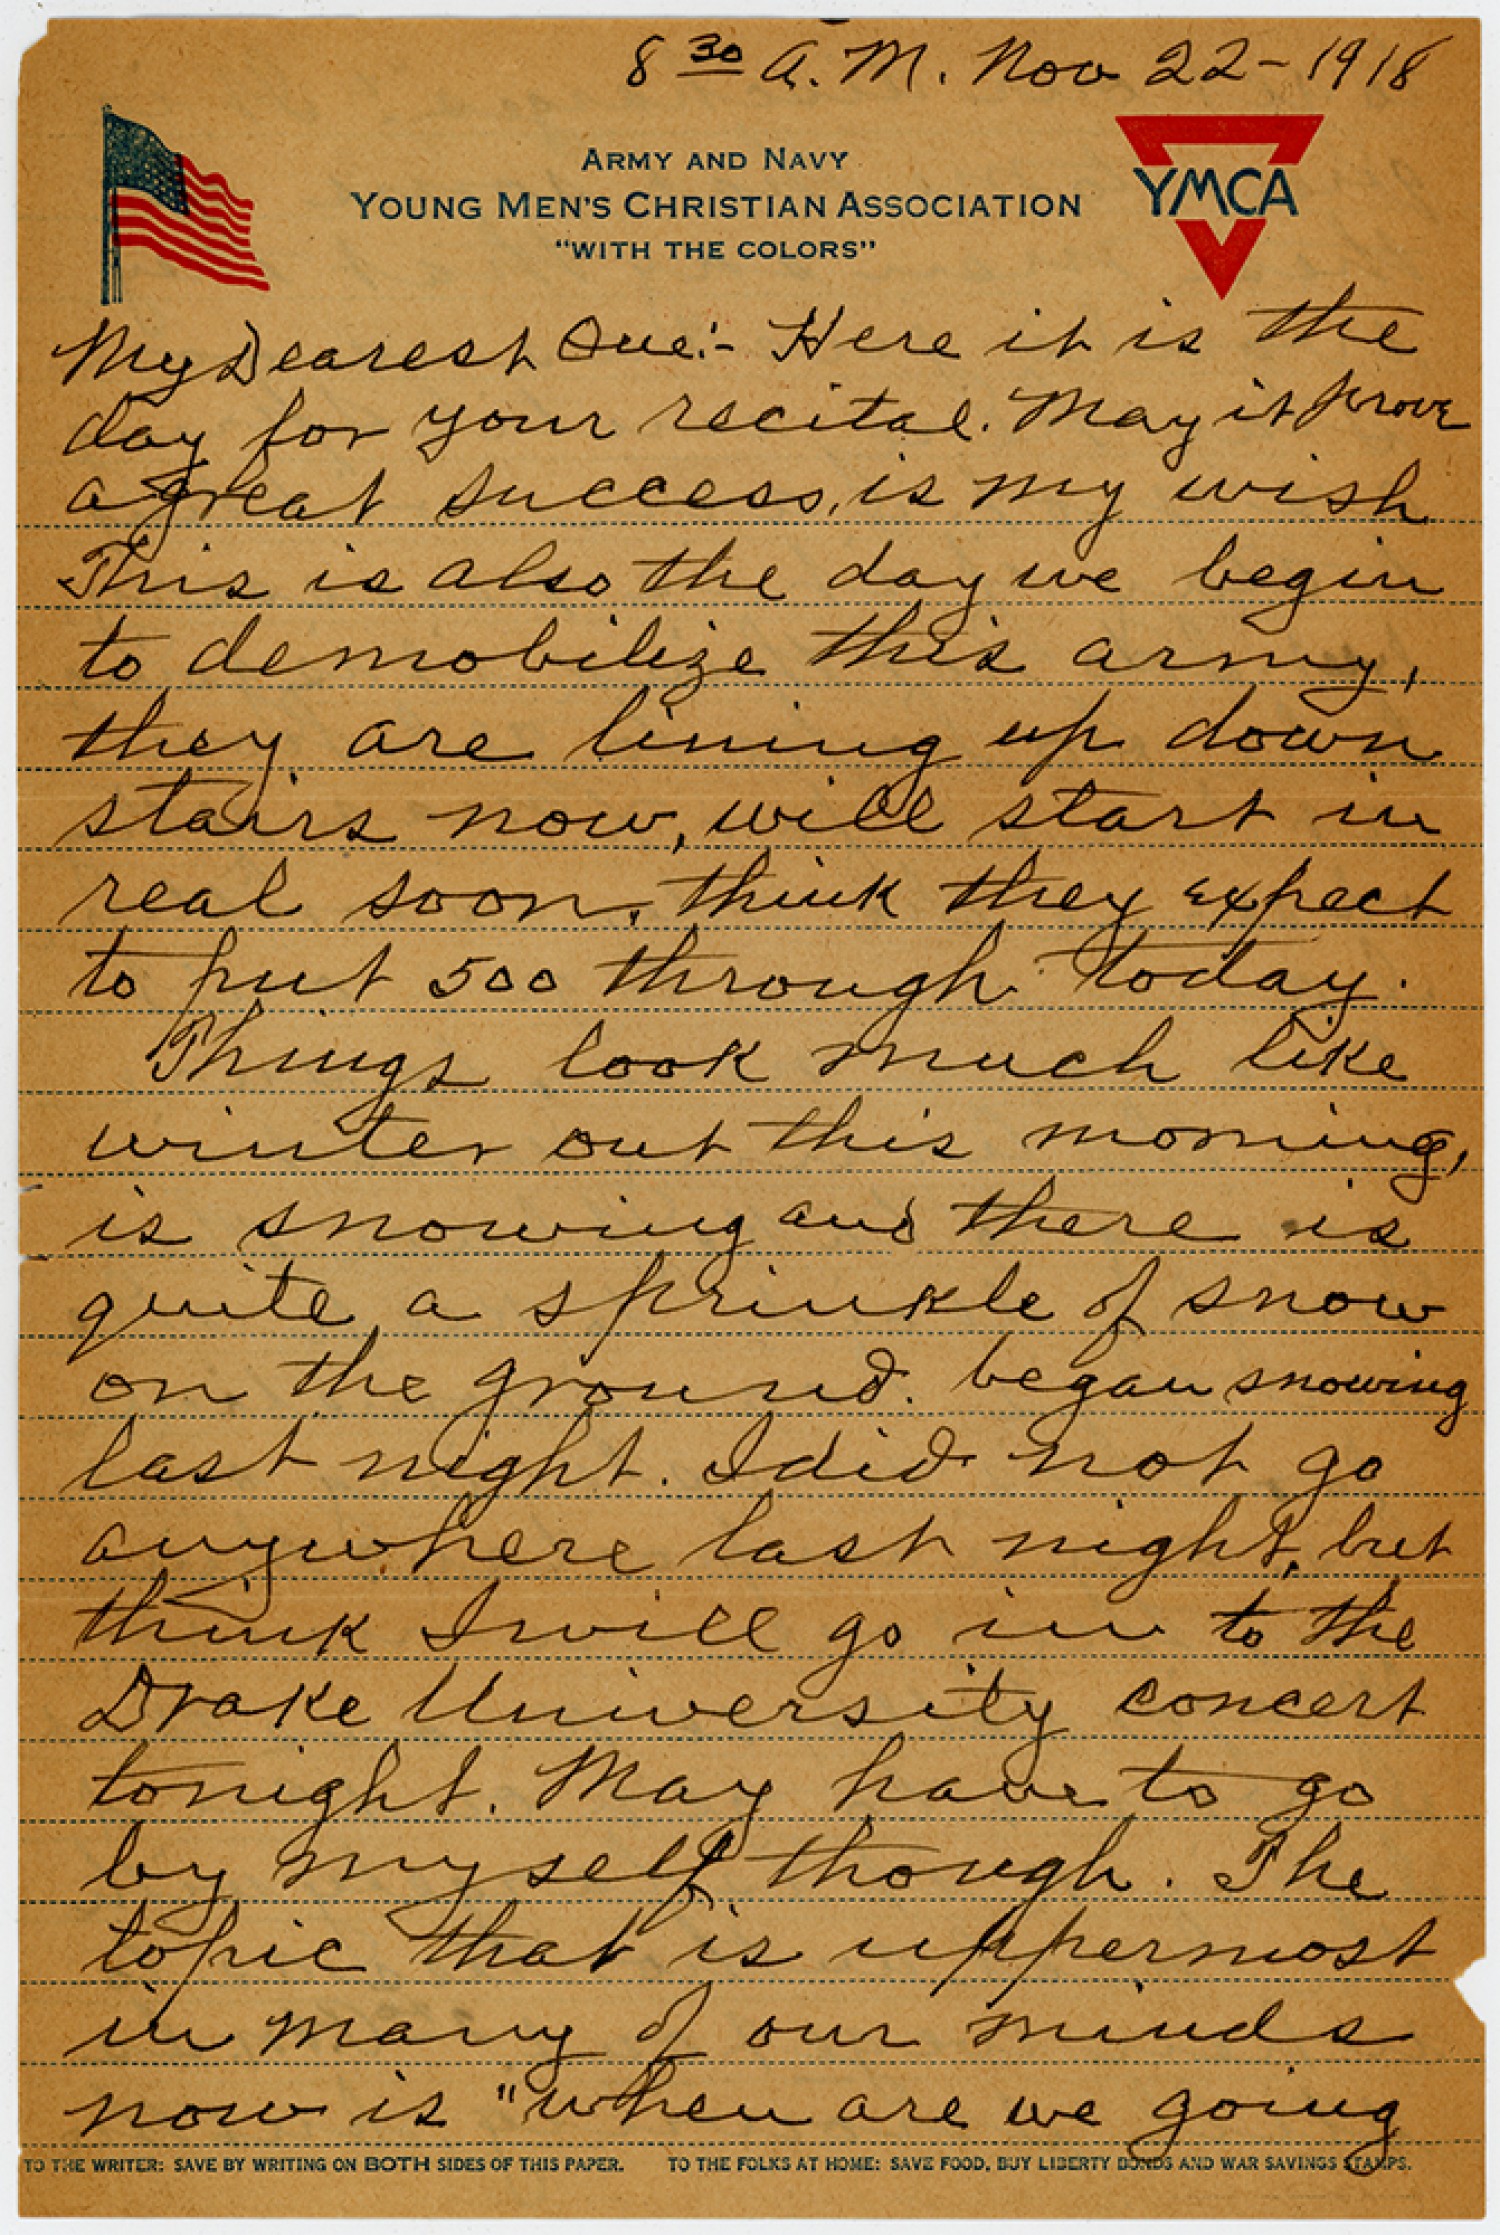 8 30 A.M. Nov 22-1918
ARMY AND NAVY
YOUNG MEN'S CHRISTIAN ASSOCIATION
"WITH THE COLORS"
YMCA
My Dearest Sue:- Here it is the
day for your recital. May it prove
a great success, is my wish
This is also the day we begin
to demobilize this army,
they are lining up down
stairs now, will start in
real soon, think they expect
to put 500 through today.
Things look much like
winter out this morning,
is snowing and there is
quite a sprinkle of snow
on the ground. began snowing
last night. I did not go
anywhere last night, but
think I will go in to the
Drake University concert
tonight. May have to go
by myself though. The
topic that is uppermost
in many of our minds
now is "when are we going
TO THE WRITER: SAVE BY WRITING ON BOTH SIDES OF THIS PAPER. TO THE FOLKS AT HOME: SAVE FOOD, BUY LIBERTY BONDS AND WAR SAVINGS STAMPS.